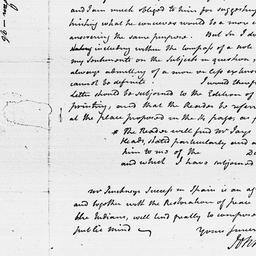 and I am much obliged to him for suggesting
hinting what he conceives would be a more
answering the same purpose. But Sir I do
including within the compass of a note
my Sentiments on the Subjects in question,
always admitting of a more or less
cannot be definite. I would therefore
Letter should be subjoined to the Edition of
printing, and that the Reader be referred
at the place proposed in the page, as
* the Reader will find Mr Jays
Heads, stated particularly and
him to me of the
and which I have subjoined
Mr Pinckneys Success in Spain is an
and together with the Restoration of peace
the Indians, will tend greatly to compose
public mind
Yours
John